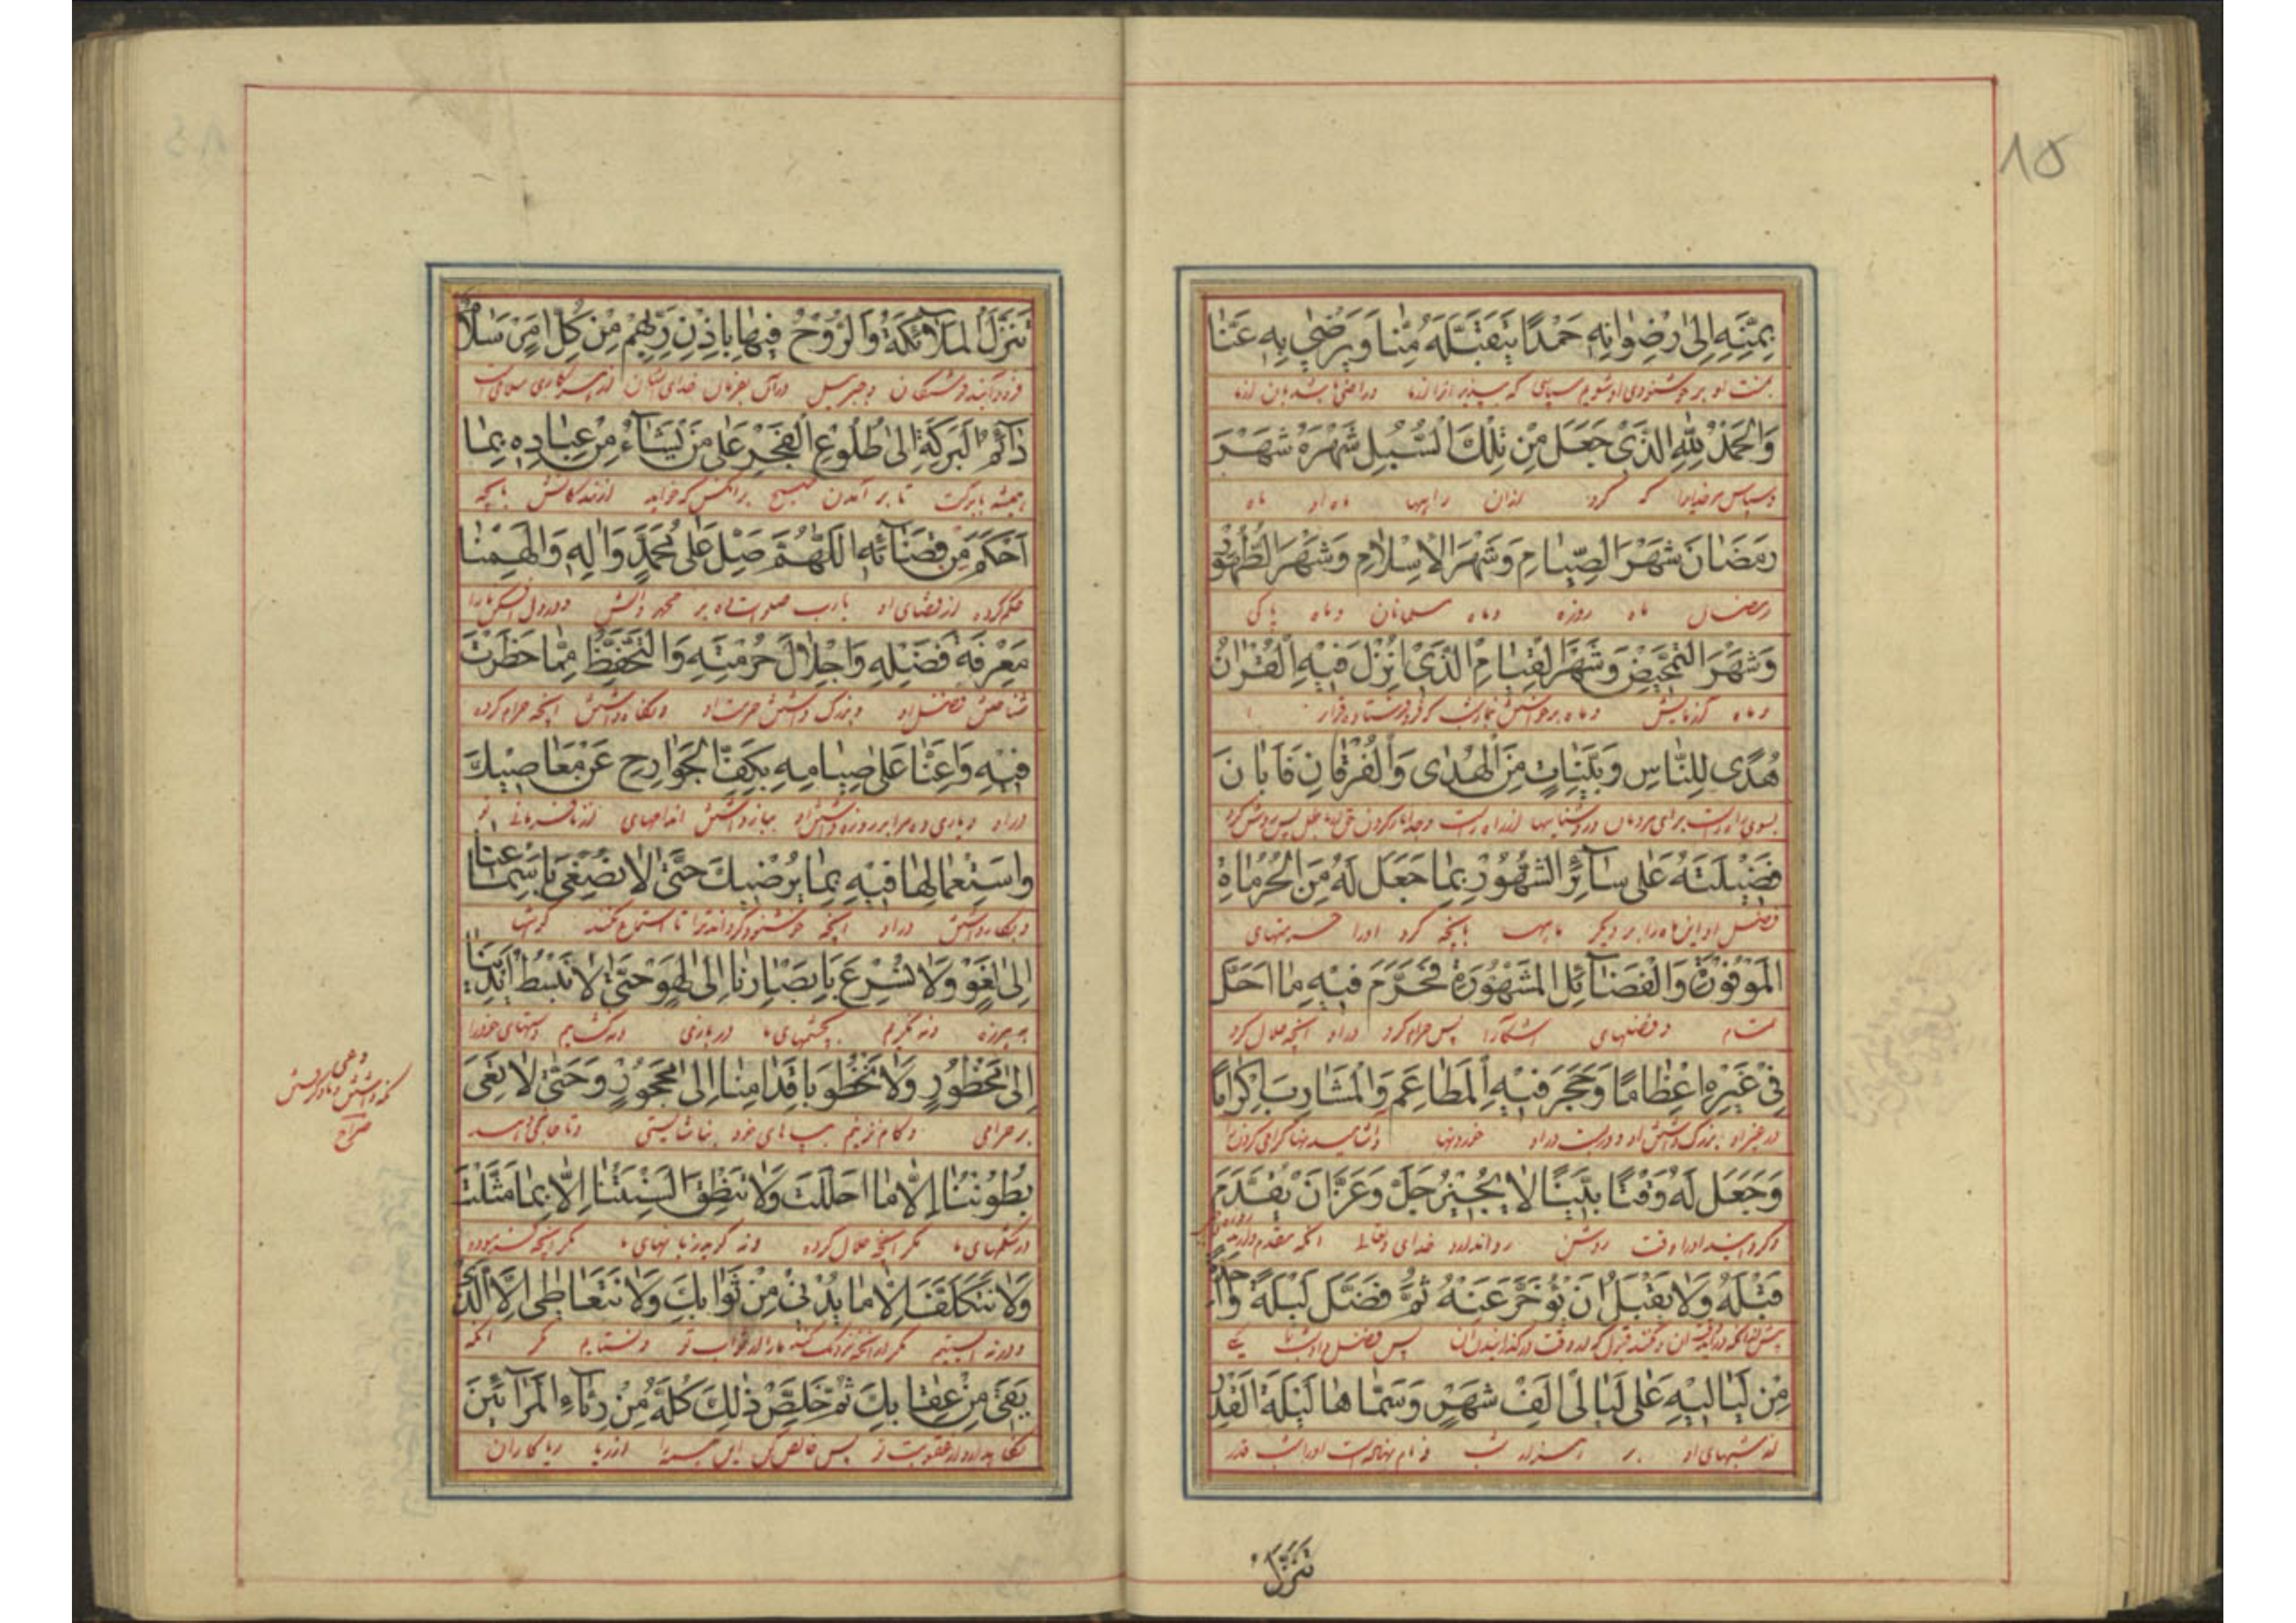 ۸۵
بِمَنِّهِ اِلیٰ رِضْوٰانِهِ حَمْدًا يَتَقَبَّلَهُ مِنّٰا وَيَرْضىٰ بِهِ عَنّٰا
بمنت او بر خوشنودی او شویم سپاسی که بپذیرد آنرا از ما و راضی باشد بدان از ما
وَالْحَمْدُ لِلّٰهِ الَّذى جَعَلَ مِنْ تِلْكَ السُّبُلِ شَهْرَهُ شَهْرَ
و سپاس مر خدایرا که کرد از آن راهها ماه او ماه
رَمَضٰانَ شَهْرَ الصِّيٰامِ وَشَهْرَ الْاِسْلٰامِ وَشَهْرَ الطَّهُورِ
رمضان ماه روزه و ماه مسلمانان و ماه پاکی
وَشَهْرَ التَّمْحيصِ وَشَهْرَ الْقِيٰامِ الَّذى اُنْزِلَ فيهِ الْقُرْاٰنُ
و ماه آزمایش و ماه برخواستن
هُدًى لِلنّٰاسِ وَبَيِّنٰاتٍ مِنَ الْهُدٰى وَالْفُرْقٰانِ فَاَبٰانَ
برای مردمان و روشناییها از راه راست
فَضيلَتَهُ عَلىٰ سٰآئِرِ الشُّهُورِ بِمٰا جَعَلَ لَهُ مِنَ الْحُرُمٰاةِ
فضل او این ماه را بر دیگر ماهها بآنچه کرد اورا حرمتهای
الْمَوْفُورَةِ وَالْفَضٰآئِلِ الْمَشْهُورَةِ فَحَرَّمَ فيهِ مٰا اَحَلَّ
تمام و فضلهای آشکارا پس حرام کرد در او آنچه حلال کرد
فى غَيْرِهِ اِعْظٰامًا وَحَجَرَ فيهِ الْمَطٰاعِمَ وَالْمَشٰارِبَ اِكْرٰامًا
در غیر او بزرگ داشتن او در او خوردنیها
وَجَعَلَ لَهُ وَقْتًا بَيِّنًا لٰا يُجيزُ جَلَّ وَعَزَّ اَنْ يُقَدَّمَ
و گردانید اورا وقت روشن روا ندارد خدای آنکه مقدم دارند
قَبْلَهُ وَلٰا يَقْبَلُ اَنْ يُؤَخَّرَ عَنْهُ ثُمَّ فَضَّلَ لَيْلَةً وٰاحِدَةً
پس فضل داد شب یکی
مِنْ لَيٰاليهِ عَلىٰ لَيٰالى اَلْفِ شَهْرٍ وَسَمّٰاهٰا لَيْلَةَ الْقَدْرِ
از شبهای او بر هزار شب و نام نهاد اورا شب قدر
تَنَزَّلُ
تَنَزَّلُ الْمَلٰآئِكَةُ وَالرُّوحُ فيهٰا بِاِذْنِ رَبِّهِمْ مِنْ كُلِّ اَمْرٍ سَلٰامٌ
فرود آیند فرشتگان و جبرئیل در آن بفرمان خدای ایشان از هر کاری سلامی است
دٰآئِمُ الْبَرَكَةِ اِلىٰ طُلُوعِ الْفَجْرِ عَلىٰ مَنْ يَشٰآءُ مِنْ عِبٰادِهِ بِمٰا
همیشه با برکت تا بر آمدن صبح بر آنکس که خواهد از بندگانش بآنچه
اَحْكَمَ مِنْ قَضٰآئِهِ اَللّٰهُمَّ صَلِّ عَلىٰ مُحَمَّدٍ وَاٰلِهِ وَاَلْهِمْنٰا
حکم کرده از قضای او یارب صلوات ده بر محمد و آلش و در دل افکن مارا
مَعْرِفَةَ فَضْلِهِ وَاِجْلٰالَ حُرْمَتِهِ وَالتَّحَفُّظَ مِمّٰا حَظَرْتَ
شناختن فضل او و بزرگ داشتن حرمت او و نگاه داشتن آنچه حرام کرده
فيهِ وَاَعِنّٰا عَلىٰ صِيٰامِهِ بِكَفِّ الْجَوٰارِحِ عَنْ مَعٰاصيكَ
در او و یاری ده مرا بر روزه داشتن او بباز داشتن اندامهای از نافرمانی تو
وَاسْتِعْمٰالِهٰا فيهِ بِمٰا يُرْضيكَ حَتّىٰ لٰا نُصْغِىَ بِاَسْمٰاعِنٰا
و بکار داشتن در او آنچه خوشنود گرداند ترا تا استماع نکنند گوشها
اِلىٰ لَغْوٍ وَلٰا نُسْرِعَ بِاَبْصٰارِنٰا اِلىٰ لَهْوٍ وَحَتّىٰ لٰا نَبْسُطَ اَيْدِيَنٰا
و نه نگریم بچشمهای ما در بازی و نه گشاییم دستهای خودرا
اِلىٰ مَحْظُورٍ وَلٰا نَخْطُوَ بِاَقْدٰامِنٰا اِلىٰ مَحْجُورٍ وَحَتّىٰ لٰا تَعِىَ
بر حرامی و گام نزنیم بپاهای خود بناشایستی
بُطُونُنٰا اِلّٰا مٰا اَحْلَلْتَ وَلٰا تَنْطِقَ اَلْسِنَتُنٰا اِلّٰا بِمٰا مَثَّلْتَ
در شکمهای ما مگر آنچه حلال کرده و نه گوید زبانهای ما مگر آنچه فرموده
وَلٰا نَتَكَلَّفَ اِلّٰا مٰا يُدْنى مِنْ ثَوٰابِكَ وَلٰا نَتَعٰاطىٰ اِلَّا الَّذى
مگر در آنچه نزدیک کند مارا از ثواب تو مگر آنکه
يَقى مِنْ عِقٰابِكَ ثُمَّ خَلِّصْ ذٰلِكَ كُلَّهُ مِنْ رِئٰآءِ الْمُرٰآئينَ
نگاه دارد از عقوبت تو پس خالص کن این همه را از ریا ریاکاران
وعی
نگه داشتن و یاد گرفتن
صراح